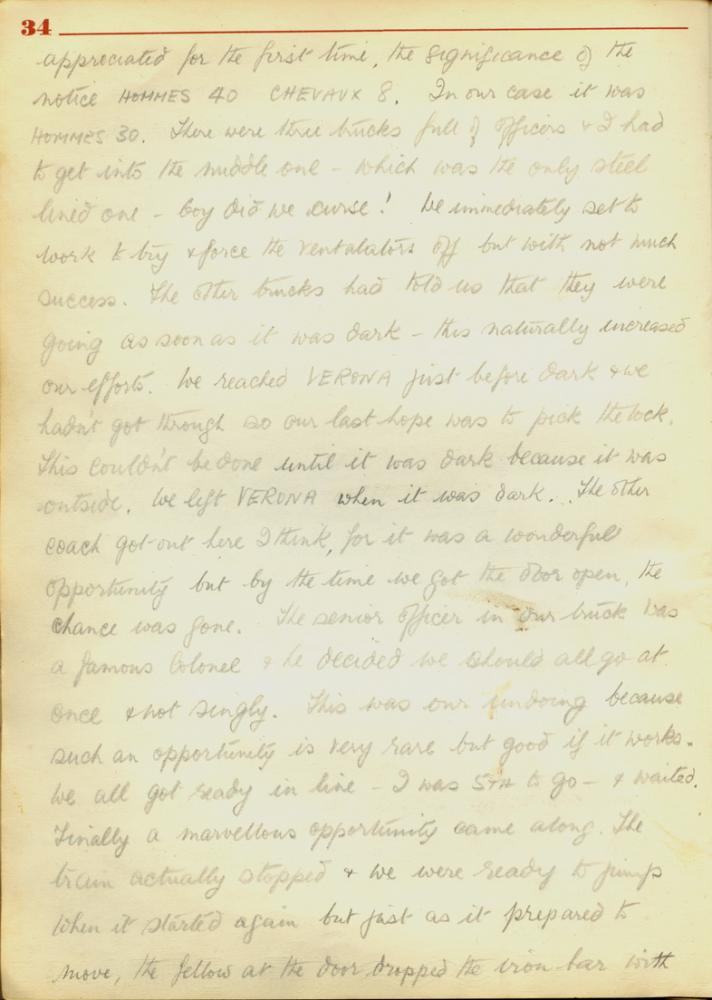 34
appreciated for the first time, the significance of the
notice HOMMES 40 CHEVAUX 8. In our case it was
HOMMES 30. There were three trucks full of officers & I had
to get into the middle one - which was the only steel
lined one - boy did we curse! We immediately set to
work to try & force the ventalators off but with not much
success. The other trucks had told us that they were
going as soon as it was dark - this naturally increased
our efforts. We reached VERONA just before dark & we
hadn't got through so our last hope was to pick the lock.
This couldn't be done until it was dark because it was
outside. We left VERONA when it was dark. The other
coach got out here I think, for it was a wonderful
opportunity but by the time we got the door open, the
chance was gone. The senior officer in our truck was
a famous Colonel & he decided we should all go at
once & not singly. This was our undoing because
such an opportunity is very rare but good if it works.
We all got ready in line - I was 5TH to go - & waited.
Finally a marvellous opportunity came along. The
train actually stopped & we were ready to jump
when it started again but just as it prepared to
move, the fellow at the door dropped the iron bar with